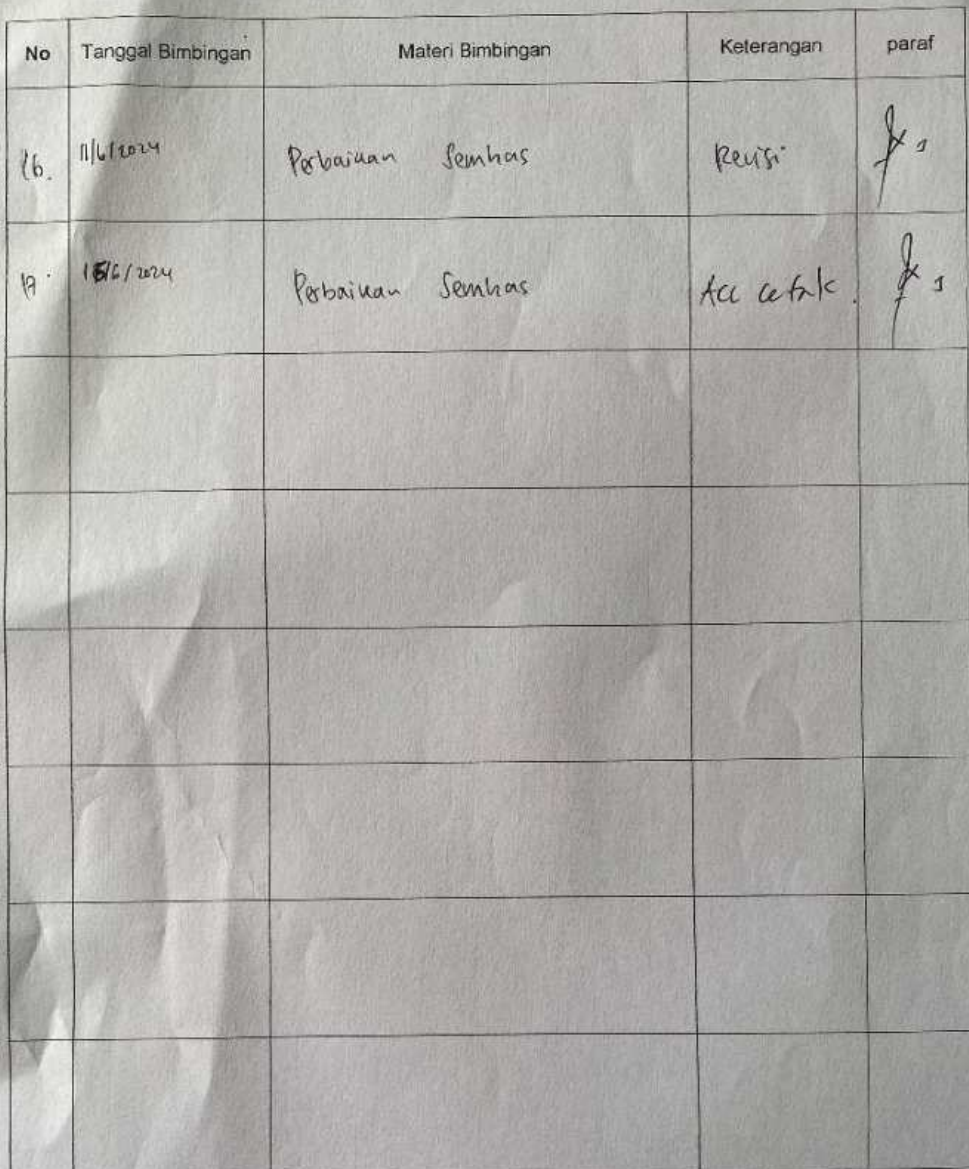 No Tanggal Bimbingan Materi Bimbingan Keterangan paraf
16. 11/6/2024 Perbaikan Semhas Revisi
17. /6/2024 Perbaikan Semhas Acc cetak.